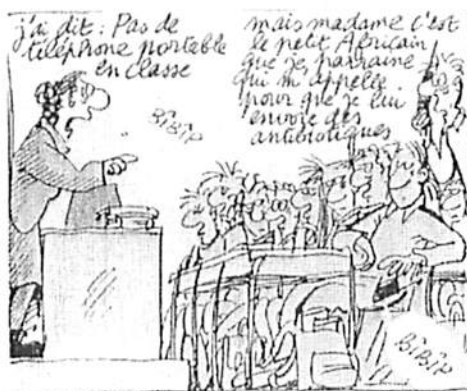 j'ai dit : Pas de
téléphone portable
en classe
mais madame c'est
le petit Africain
que je parraine
qui m'appelle
pour que je lui
envoie des
antibiotiques
BiBiP
BiBiP